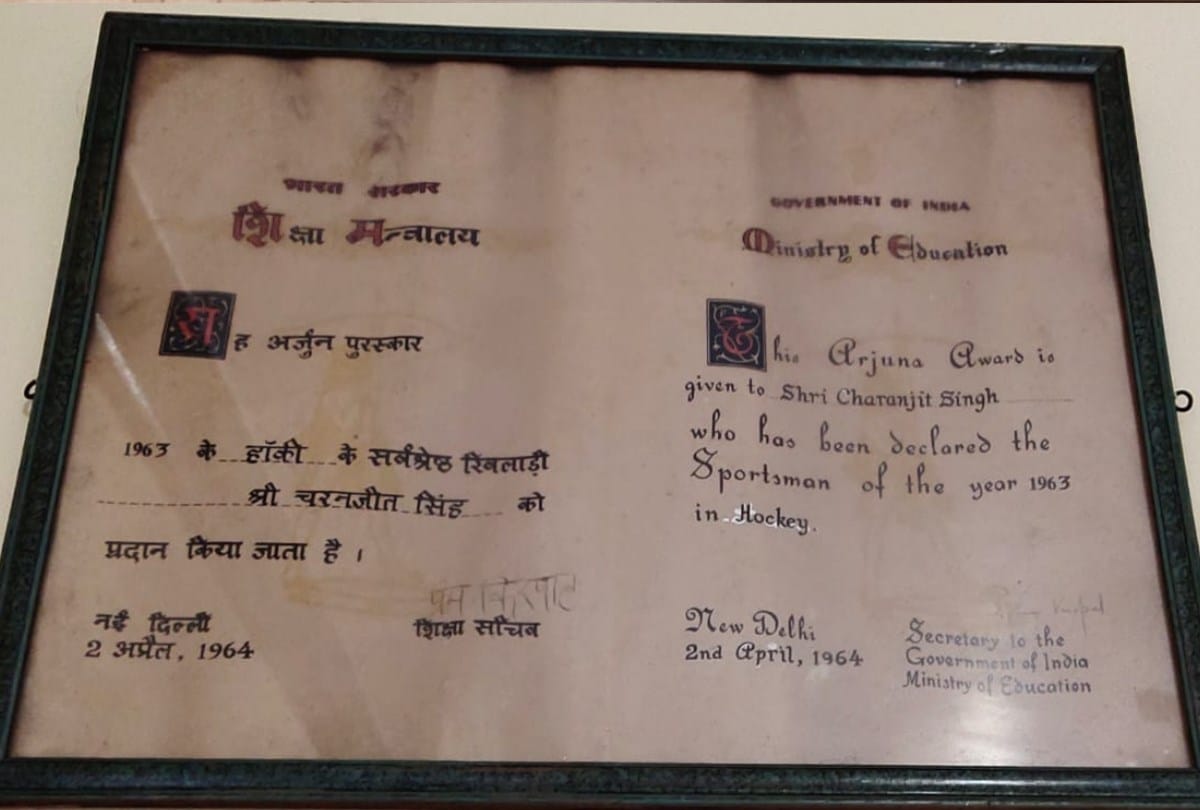 भारत सरकार
शिक्षा मन्त्रालय
यह अर्जुन पुरस्कार
1963 के हॉकी के सर्वश्रेष्ठ खिलाड़ी
श्री चरनजीत सिंह को
प्रदान किया जाता है ।
नई दिल्ली
2 अप्रैल, 1964
शिक्षा सचिव
GOVERNMENT OF INDIA
Ministry of Education
This Arjuna Award is
given to Shri Charanjit Singh
who has been declared the
Sportsman of the year 1963
in Hockey.
New Delhi
2nd April, 1964
Secretary to the
Government of India
Ministry of Education